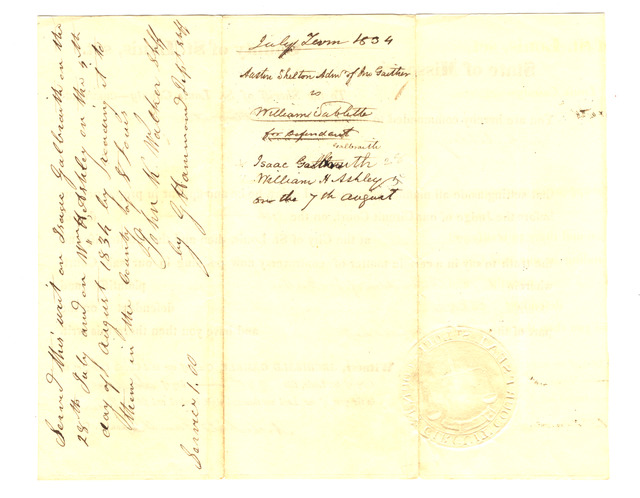 July Term 1834
Austin Shelton Admr of Jno Gaither
vs
William Sublette
for Defendant
Galbraith
Isaac Galbraith
William H Ashley
on the 7th August
Served this writ on Isaac Galbraith on the
28th July and on Wm H. Ashley on the 7th
day of August 1834 by reading it to
them in the County of St Louis
John K Walker Shff
by G Hammond Dept Shff
Service 1.00
CIRCUIT COURT